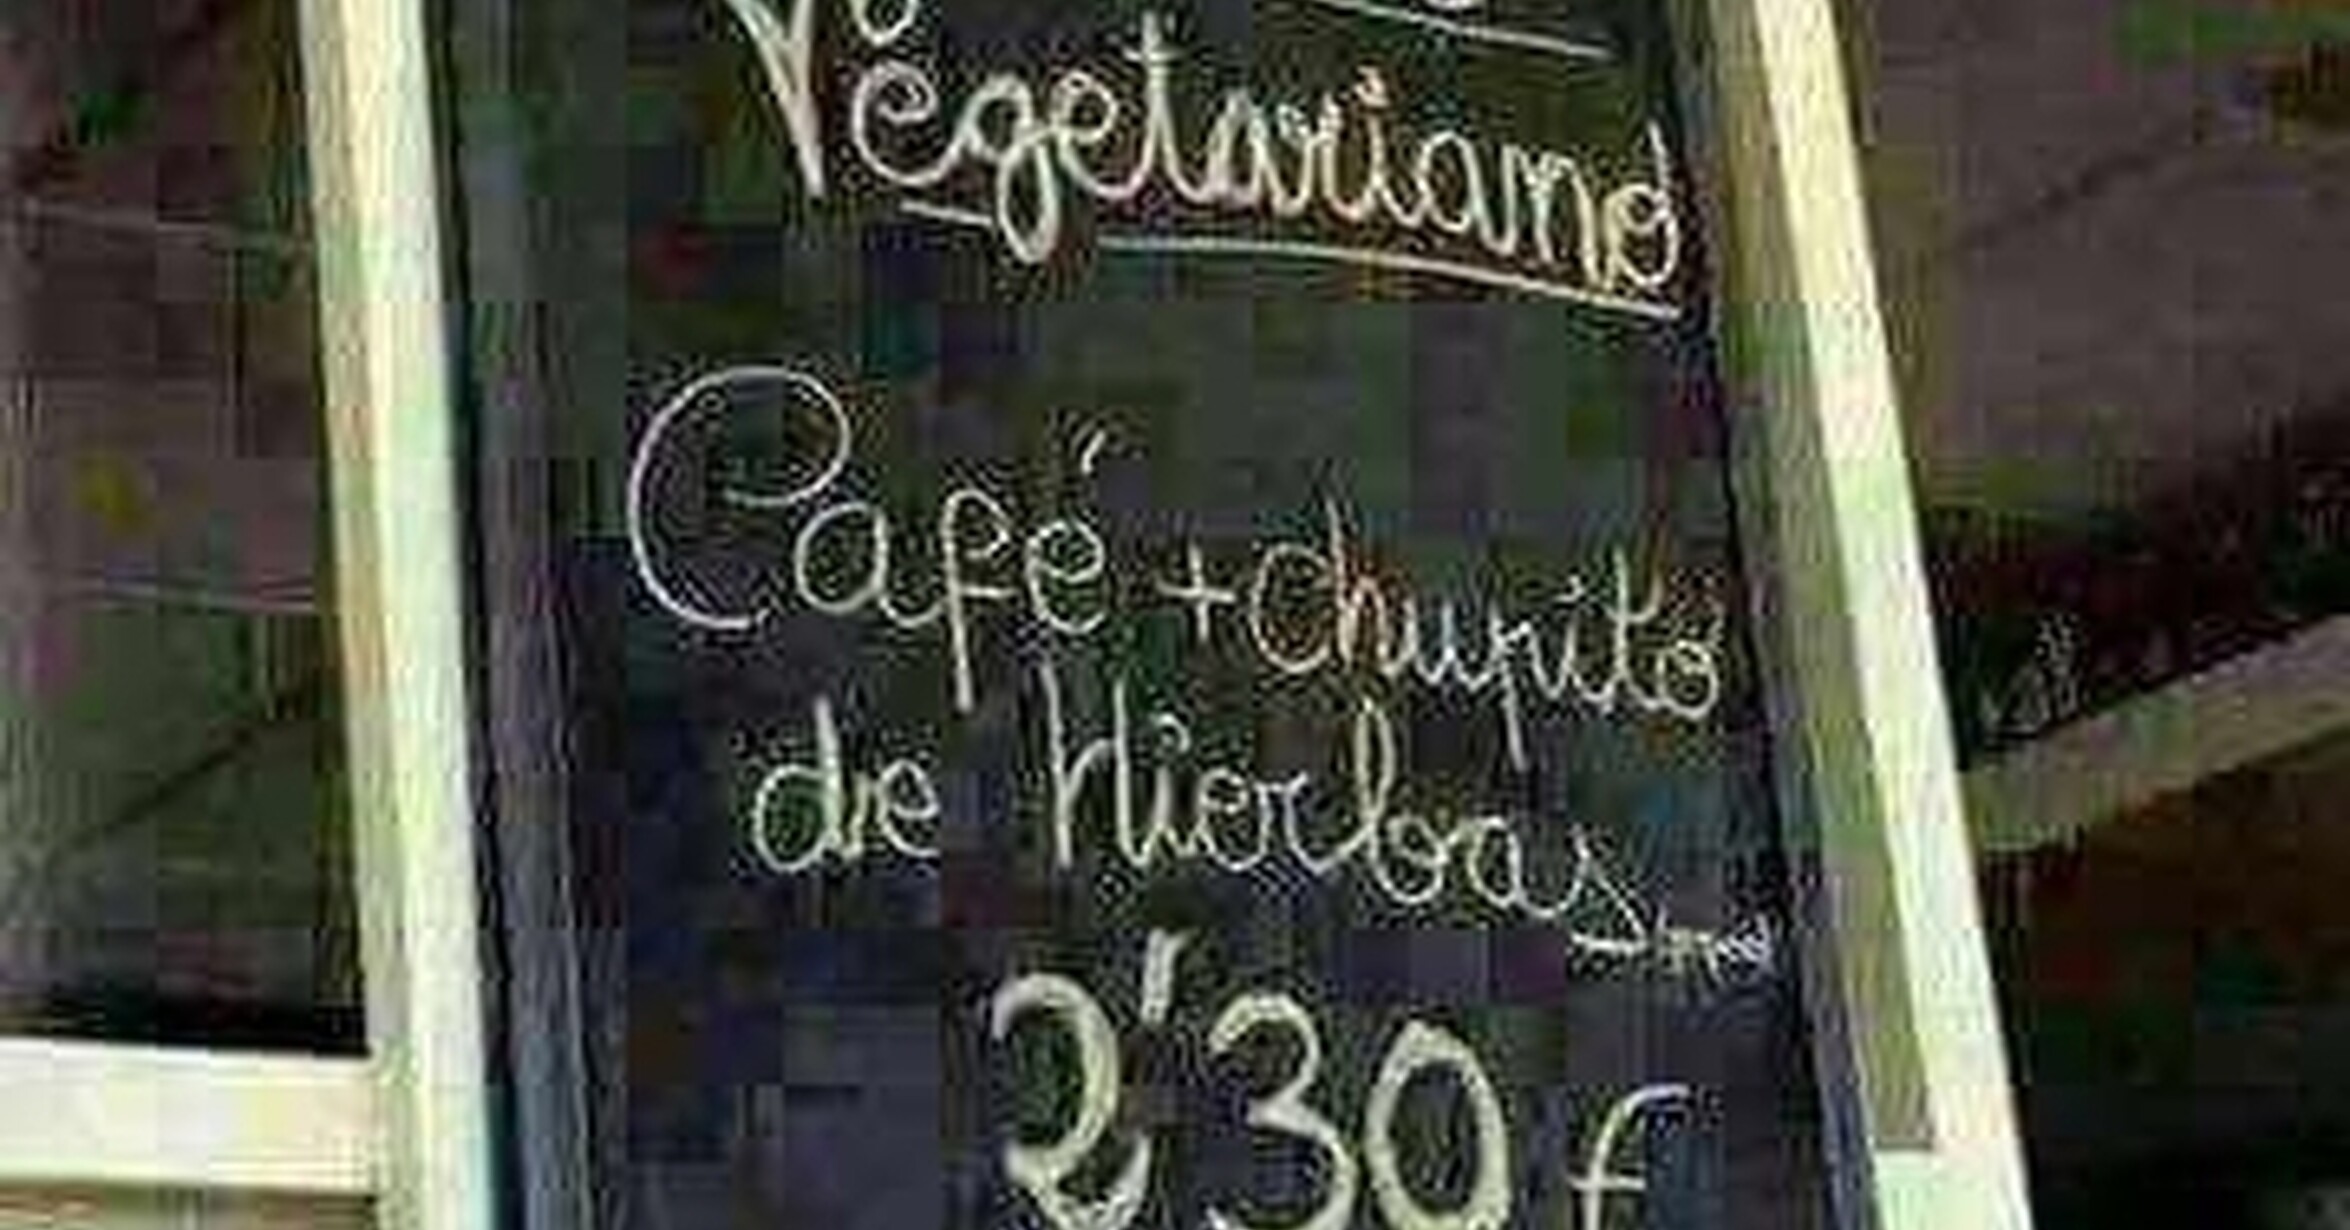 Vegetariano
Café + chupito
de Hierbas
2'30 €